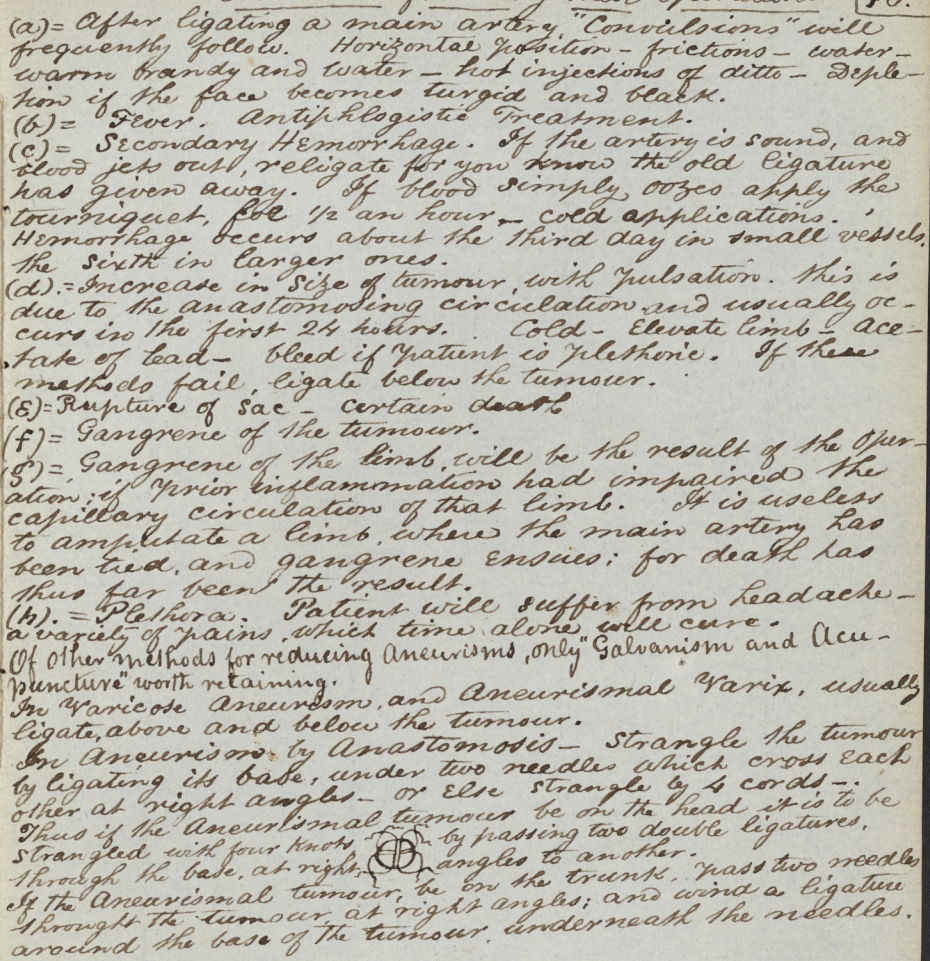 (a)= After ligating a main artery, "Convulsions" will
frequently follow. Horizontal position - frictions - water -
warm brandy and water - hot injections of ditto - Deple-
tion if the face becomes turgid and black.
(b)= Fever. Antiphlogistic Treatment.
(c)= Secondary Hemorrhage. If the artery is sound, and
blood jets out, religate for you know the old ligature
has given away. If blood simply oozes apply the
tourniquet, for 1/2 an hour - cold applications.
Hemorrhage occurs about the third day in small vessels,
the sixth in larger ones.
(d).= Increase in size of tumour, with pulsation. This is
due to the anastomosing circulation and usually oc-
curs in the first 24 hours. Cold - Elevate limb - Ace-
tate of lead - bleed if patient is plethoric. If these
methods fail, ligate below the tumour.
(E)= Rupture of Sac - certain death
(f)= Gangrene of the tumour.
(g)= Gangrene of the limb, will be the result of the Oper-
ation; if prior inflammation had impaired the
capillary circulation of that limb. It is useless
to amputate a limb, where the main artery has
been tied, and gangrene ensues; for death has
thus far been the result.
(h).= Plethora. Patient will suffer from headache -
a variety of pains, which time alone will cure.
Of Other methods for reducing Aneurisms, only "Galvanism and Acu-
puncture" worth retaining.
In Varicose Aneurism, and Aneurismal Varix, usually
ligate, above and below the tumour.
In Aneurism by Anastomosis - Strangle the tumour
by ligating its base, under two needles which cross each
other at right angles - or else strangle by 4 cords -.
Thus if the Aneurismal tumour be on the head it is to be
strangled with four knots, by passing two double ligatures,
through the base, at right angles to another.
If the Aneurismal tumour, be on the trunk, pass two needles
throught the tumour, at right angles; and wind a ligature
around the base of the tumour, underneath the needles.